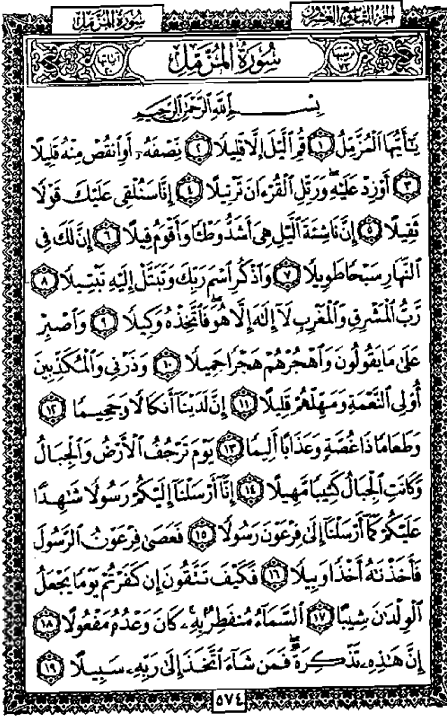 الجزء التاسع والعشرون سورة المزمل
سُورَةُ المُزَّمِّل
بِسْمِ اللَّهِ الرَّحْمَٰنِ الرَّحِيمِ
يَٰٓأَيُّهَا ٱلْمُزَّمِّلُ ١ قُمِ ٱلَّيْلَ إِلَّا قَلِيلًا ٢ نِّصْفَهُۥٓ أَوِ ٱنقُصْ مِنْهُ قَلِيلًا
٣ أَوْ زِدْ عَلَيْهِ وَرَتِّلِ ٱلْقُرْءَانَ تَرْتِيلًا ٤ إِنَّا سَنُلْقِى عَلَيْكَ قَوْلًا
ثَقِيلًا ٥ إِنَّ نَاشِئَةَ ٱلَّيْلِ هِىَ أَشَدُّ وَطْـًٔا وَأَقْوَمُ قِيلًا ٦ إِنَّ لَكَ فِى
ٱلنَّهَارِ سَبْحًا طَوِيلًا ٧ وَٱذْكُرِ ٱسْمَ رَبِّكَ وَتَبَتَّلْ إِلَيْهِ تَبْتِيلًا ٨
رَّبُّ ٱلْمَشْرِقِ وَٱلْمَغْرِبِ لَآ إِلَٰهَ إِلَّا هُوَ فَٱتَّخِذْهُ وَكِيلًا ٩ وَٱصْبِرْ
عَلَىٰ مَا يَقُولُونَ وَٱهْجُرْهُمْ هَجْرًا جَمِيلًا ١٠ وَذَرْنِى وَٱلْمُكَذِّبِينَ
أُو۟لِى ٱلنَّعْمَةِ وَمَهِّلْهُمْ قَلِيلًا ١١ إِنَّ لَدَيْنَآ أَنكَالًا وَجَحِيمًا ١٢
وَطَعَامًا ذَا غُصَّةٍ وَعَذَابًا أَلِيمًا ١٣ يَوْمَ تَرْجُفُ ٱلْأَرْضُ وَٱلْجِبَالُ
وَكَانَتِ ٱلْجِبَالُ كَثِيبًا مَّهِيلًا ١٤ إِنَّآ أَرْسَلْنَآ إِلَيْكُمْ رَسُولًا شَٰهِدًا
عَلَيْكُمْ كَمَآ أَرْسَلْنَآ إِلَىٰ فِرْعَوْنَ رَسُولًا ١٥ فَعَصَىٰ فِرْعَوْنُ ٱلرَّسُولَ
فَأَخَذْنَٰهُ أَخْذًا وَبِيلًا ١٦ فَكَيْفَ تَتَّقُونَ إِن كَفَرْتُمْ يَوْمًا يَجْعَلُ
ٱلْوِلْدَٰنَ شِيبًا ١٧ ٱلسَّمَآءُ مُنفَطِرٌۢ بِهِۦ كَانَ وَعْدُهُۥ مَفْعُولًا ١٨
إِنَّ هَٰذِهِۦ تَذْكِرَةٌ فَمَن شَآءَ ٱتَّخَذَ إِلَىٰ رَبِّهِۦ سَبِيلًا ١٩
٥٧٤